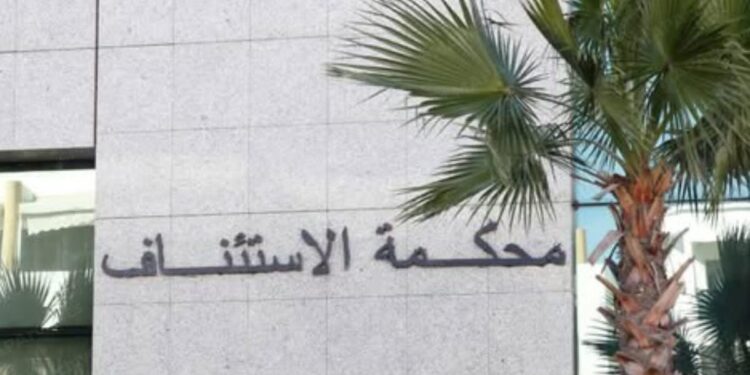 محكمة الاستئناف